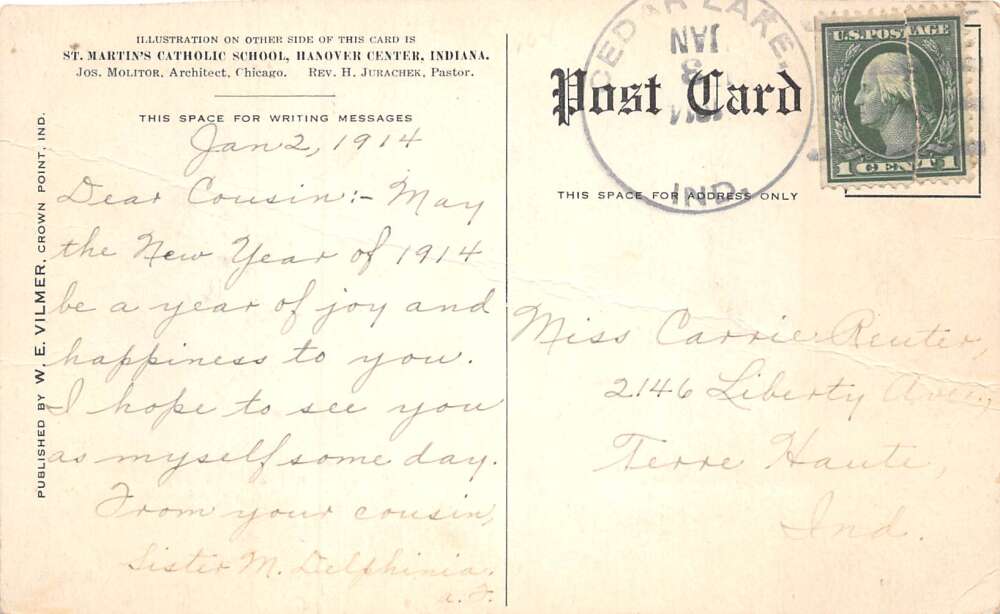 ILLUSTRATION ON OTHER SIDE OF THIS CARD IS
ST. MARTIN'S CATHOLIC SCHOOL, HANOVER CENTER, INDIANA.
JOS. MOLITOR, Architect, Chicago. REV. H. JURACHEK, Pastor.
THIS SPACE FOR WRITING MESSAGES
Jan 2, 1914
Dear Cousin:- May
the New Year of 1914
be a year of joy and
happiness to you.
I hope to see you
as myself some day.
From your cousin,
Sister M. Delphinia.
PUBLISHED BY W. E. VILMER, CROWN POINT, IND.
Post Card
THIS SPACE FOR ADDRESS ONLY
CEDAR LAKE,
JAN
3
1914
IND.
U.S. POSTAGE
1 CENT 1
Miss Carrie Reuter,
2146 Liberty Ave.,
Terre Haute,
Ind.